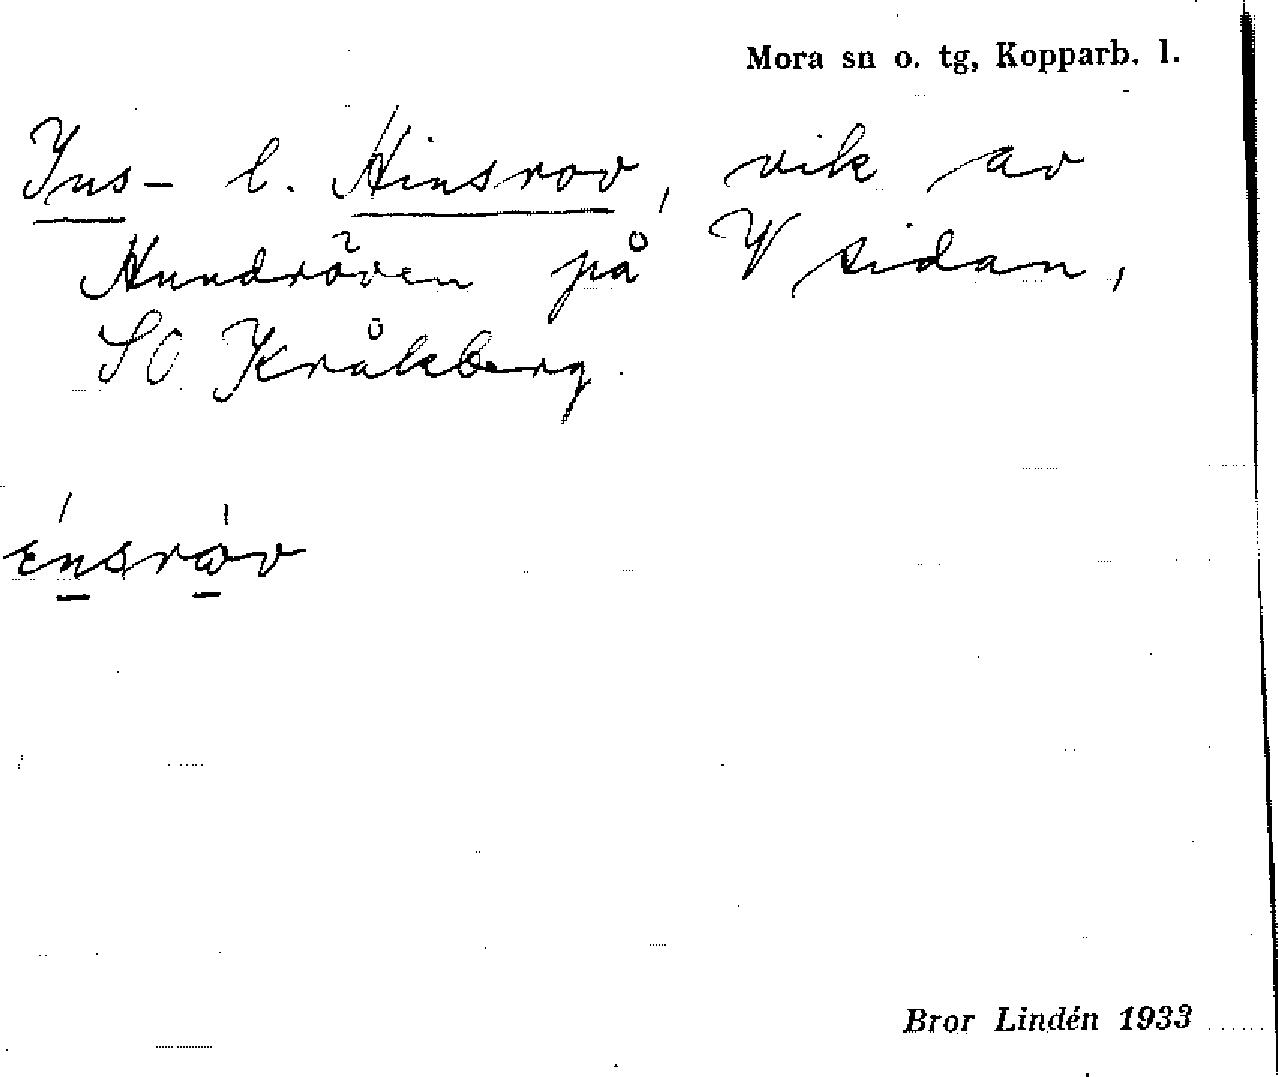 Mora sn o. tg, Kopparb. l.
Ins- l. Hinsrov, vik av
Hundröven på V sidan,
SO Kråkberg.
ènsròv
Bror Lindén 1933